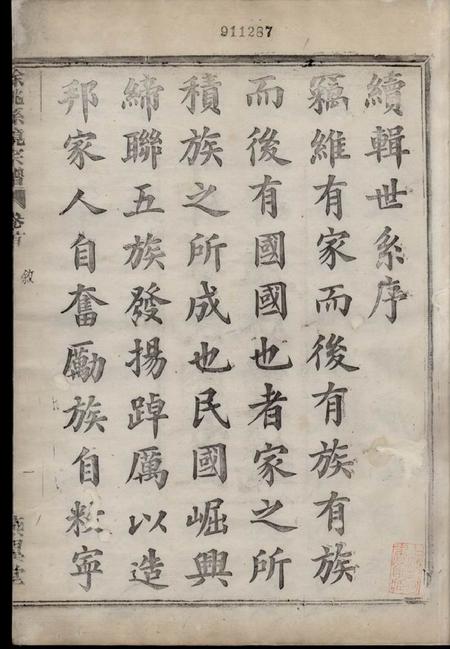 911287
續輯世系序
竊維有家而後有族有族
而後有國國也者家之所
積族之所成也民國崛興
締聯五族發揚踔厲以造
邦家人自奮勵族自敉寧
餘姚孫境宗譜
卷首
敘
一